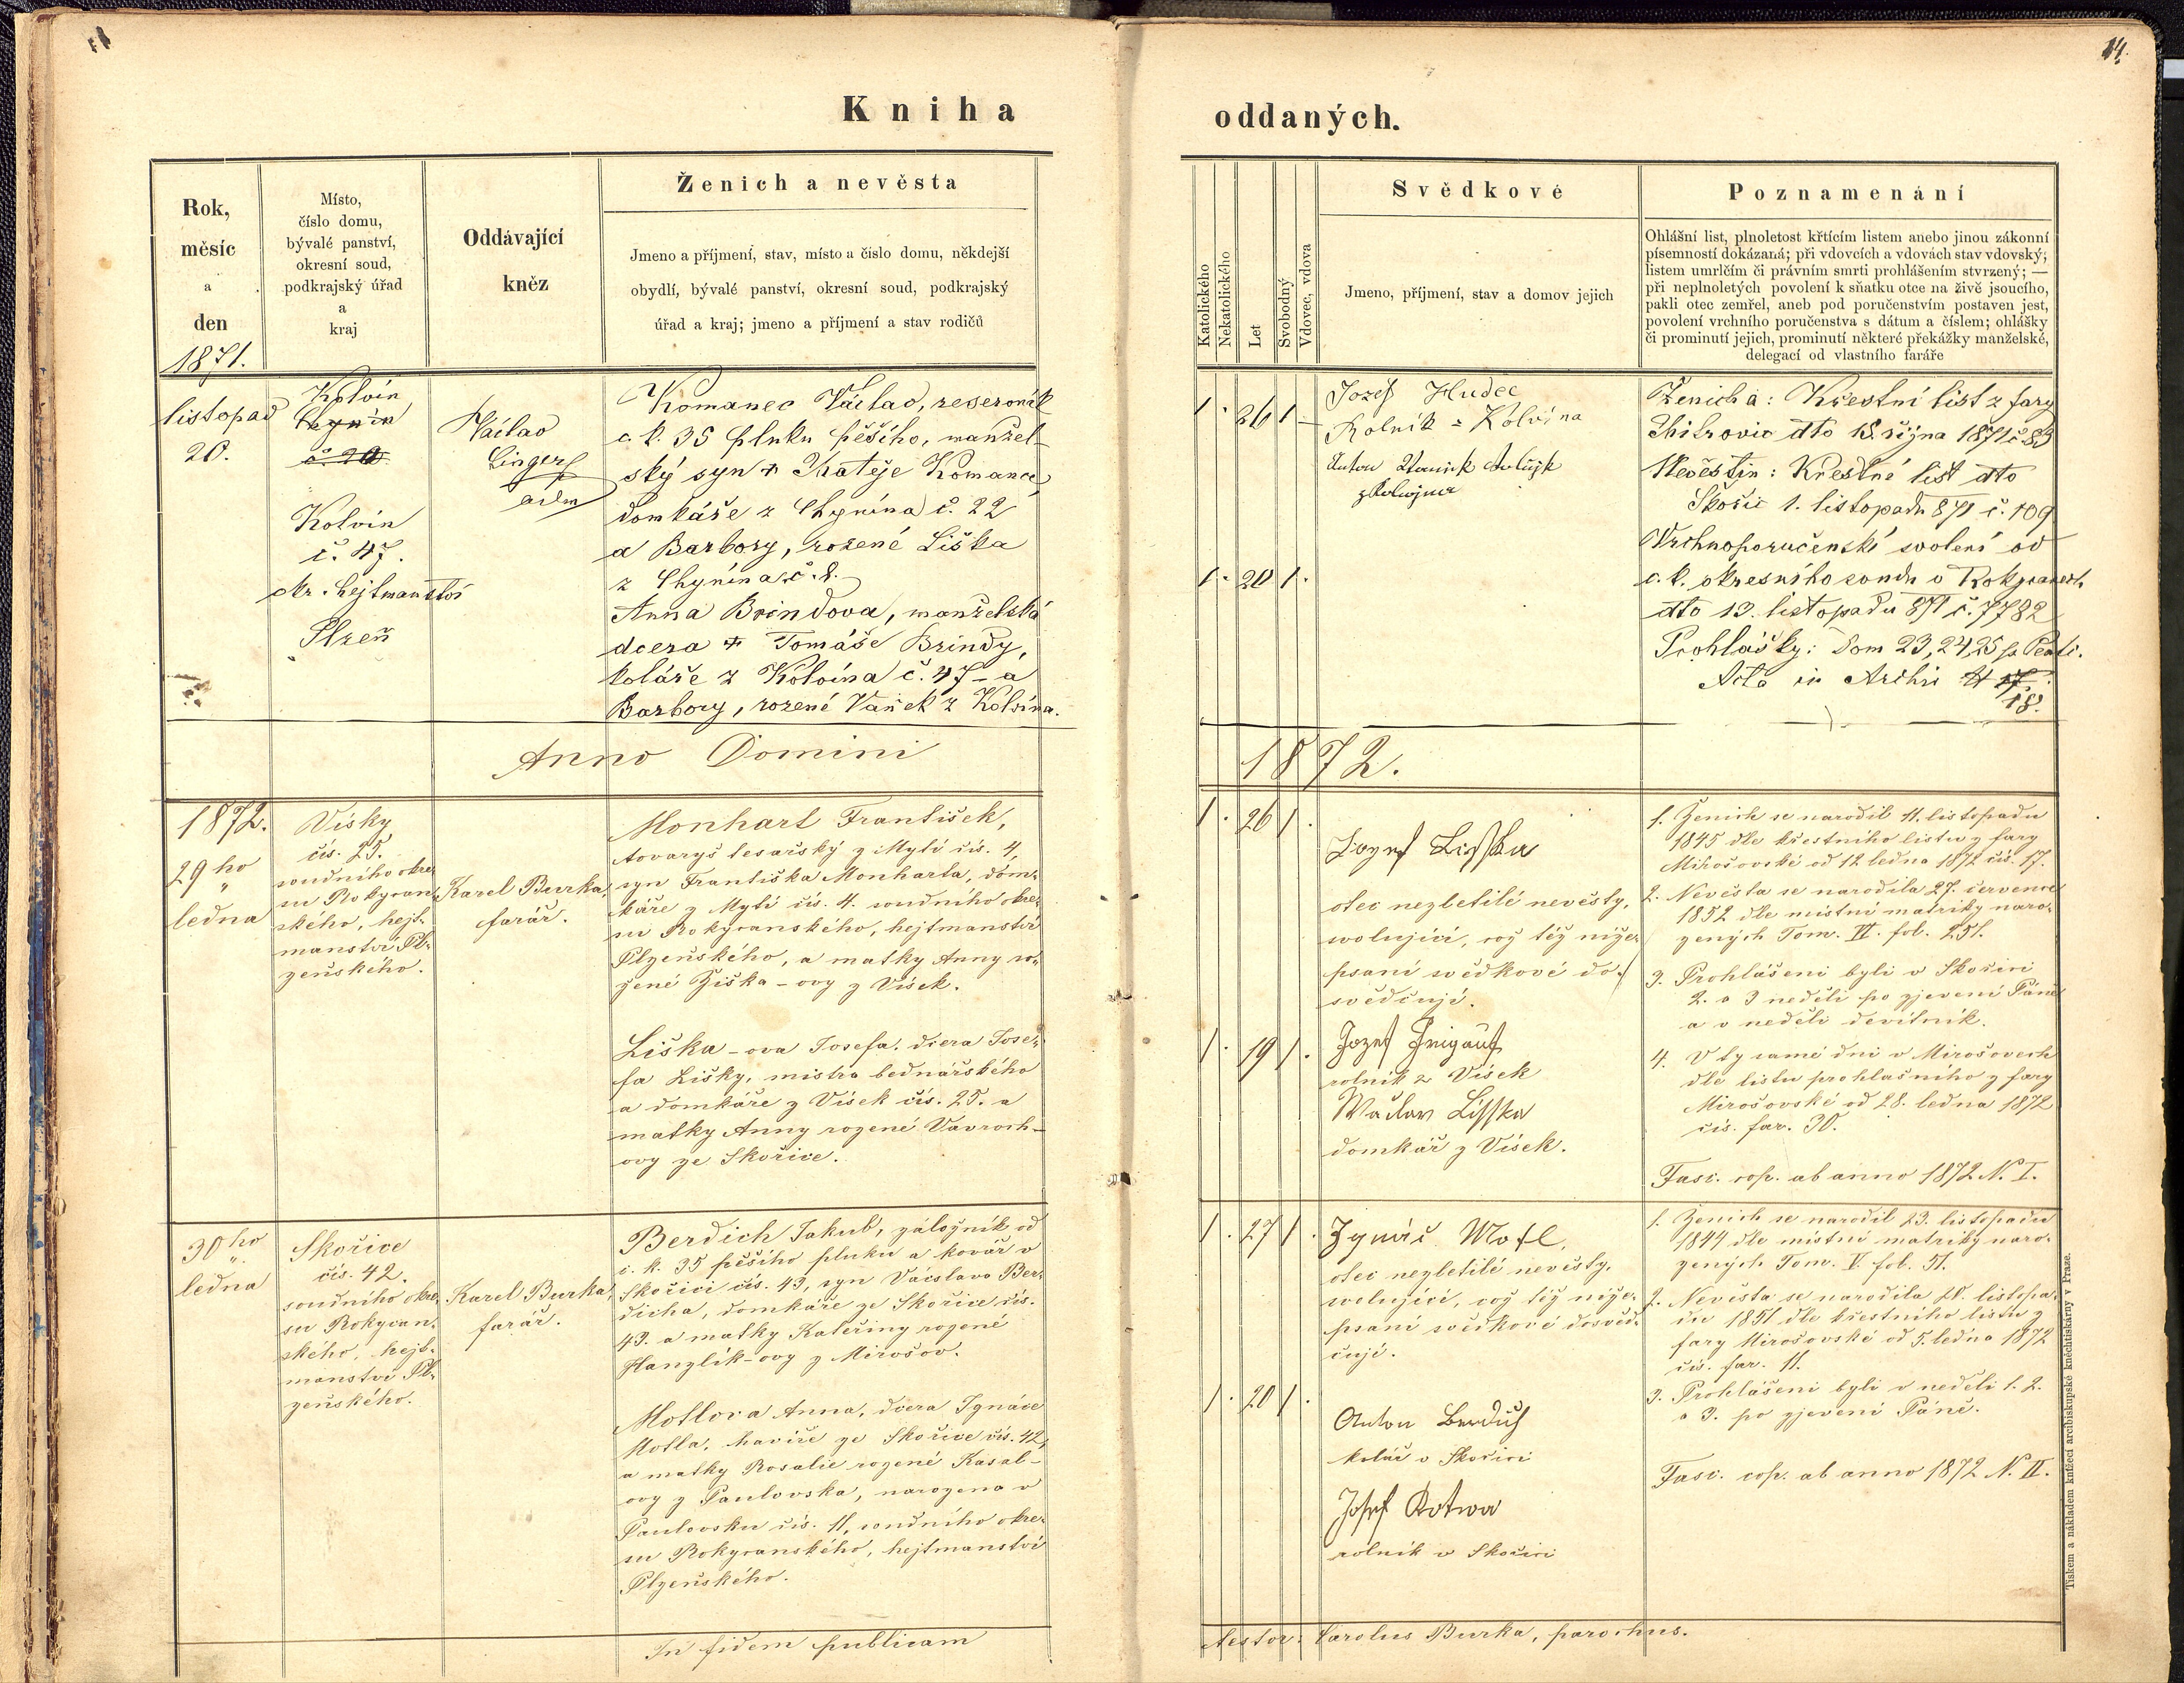 14.
Kniha
oddaných.
Rok,
měsíc
a
den
1871.
Místo,
číslo domu,
bývalé panství,
okresní soud,
podkrajský úřad
a
kraj
Oddávající
kněz
Ženich a nevěsta
Jmeno a příjmení, stav, místo a číslo domu, někdejší
obydlí, bývalé panství, okresní soud, podkrajský
úřad a kraj; jmeno a příjmení a stav rodičů
Katolického
Nekatolického
Let
Svobodný
Vdovec, vdova
Svědkové
Jmeno, příjmení, stav a domov jejich
Poznamenání
Ohlášní list, plnoletost křtícím listem anebo jinou zákonní
písemností dokázaná; při vdovcích a vdovách stav vdovský;
listem umrlčím či právním smrti prohlášením stvrzený; —
při neplnoletých povolení k sňatku otce na živě jsoucího,
pakli otec zemřel, aneb pod poručenstvím postaven jest,
povolení vrchního poručenstva s dátum a číslem; ohlášky
či prominutí jejich, prominutí některé překážky manželské,
delegací od vlastního faráře
listopad
20.
Kolvín
Chynín
č. 20
Kolvín
č. 47.
okr. hejtmanství
Plzeň
Václav
adm
Komanec Václav, reservník
c. k. 35 pluku pěšího, manžel-
ský syn + Matěje Komance,
domkáře z Chynína č. 22
a Barbory, rozené Liška
z Chynína č. 8.
Anna Brindova, manželská
dcera + Tomáše Brindy,
koláře z Kolvína č. 47 - a
Barbory, rozené Vaněk z Kolvína.
1 26 1
1 20 1
Jozef Hudec
Rolník z Kolvína
Anton
z
Ženicha: Křestní list z fary
dto 18. října 1871 č. 83
Nevěstin: Křestní list dto
Skořic 1. listopadu 871 č. 109
Vrchnoporučenské svolení od
c. k. okresního soudu v Rokycanech
dto 13. listopadu 871 č. 7782
Prohlášky: Dom 23, 24, 25 p. Pent.
Acta in Archiv 17
18.
Anno Domini
1872.
1872.
29 ho
ledna
Vísky
čís. 25.
soudního okre-
su Rokycan-
ského, hejt-
manství Pl-
zeňského.
Karel Burka,
farář.
Monhart František,
tovaryš tesařský z Mýtě čís. 4,
syn Františka Monharta, dom-
káře z Mýtě čís. 4. soudního okre-
su Rokycanského, hejtmanství
Plzeňského, a matky Anny ro-
zené Žiška-ovy z Vísek.
Liška-ova Josefa, dcera Jose-
fa Lišky, mistra bednářského
a domkáře z Vísek čís. 25. a
matky Anny rozené Vavroch-
ovy ze Skořice.
1. 26 1.
1. 19 1.
Jozef Lisska
otec nezletilé nevěsty,
svolující, což též níže-
psaní svědkové do-
svědčují.
Jozef
rolník z Vísek
Waclaw Lisska
domkář z Vísek.
1. Ženich se narodil 11. listopadu
1845 dle křestního listu z fary
Mirošovské od 12 ledna 1872 čís. 17.
2. Nevěsta se narodila 27. července
1852 dle místní matriky naro-
zených Tom. VI. fol. 251.
3. Prohlášeni byli v Skořici
2. a 3 neděli po zjevení Páně
a v neděli devítník.
4. V ty samé dni v Mirošovech
dle listu prohlašního z fary
Mirošovské od 28. ledna 1872
čís. far. 30.
Fasc. cop. ab anno 1872 N. I.
30 ho
ledna
Skořice
čís. 42.
soudního okre-
su Rokycan-
ského, hejt-
manství Pl-
zeňského.
Karel Burka,
farář.
Berdich Jakub, záložník od
c. k. 35 pěšího pluku a kovář v
Skořici čís. 43, syn Václava Ber-
dicha, domkáře ze Skořice čís.
43. a matky Kateřiny rozené
Hanzlík-ovy z Mirošov.
Motlova Anna, dcera Ignáce
Motla, havíře ze Skořice čís. 42,
a matky Rosalie rozené Kasal-
ovy z Paulovska, narozena v
Paulovsku čís. 11, soudního okre-
su Rokycanského, hejtmanství
Plzeňského.
1. 27 1.
1. 20 1.
Ignác Motl,
otec nezletilé nevěsty,
svolující, což též níže-
psaní svědkové dosvěd-
čují.
Anton Berdich
kolář v Skořici
Josef Kotwa
rolník v Skořici
1. Ženich se narodil 23. listopadu
1844 dle místní matriky naro-
zených Tom. V. fol. 51.
2. Nevěsta se narodila 20. listopa-
du 1851 dle křestního listu z
fary Mirošovské od 5. ledna 1872
čís. far. 11.
3. Prohlášeni byli v neděli 1. 2.
a 3. po zjevení Páně.
Fasc. cop. ab anno 1872 N. II.
In fidem publicam
testor: Carolus Burka, parochus.
Tiskem a nákladem knížecí arcibiskupské kněhtiskárny v Praze.